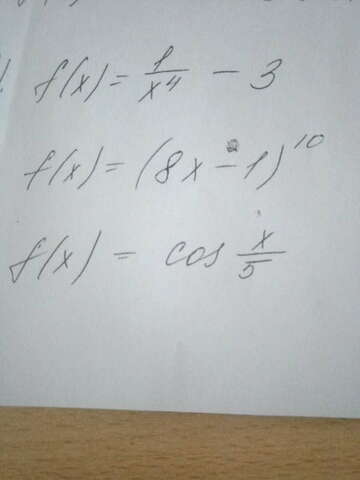 f(x) = 1/x⁴ - 3
f(x) = (8x - 1)¹⁰
f(x) = cos x/5